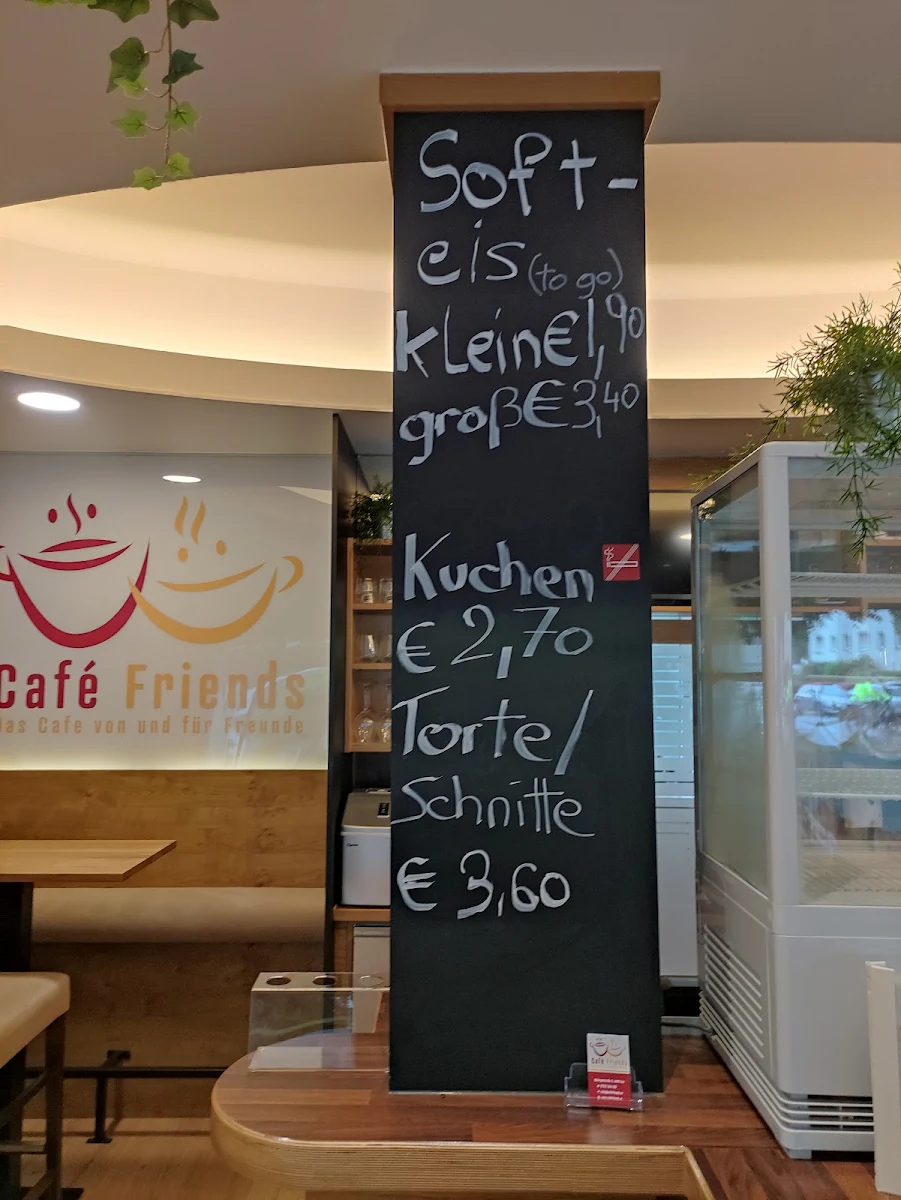 Soft-
eis (to go)
kLein € 1,90
groß € 3,40
Kuchen
€ 2,70
Torte/
Schnitte
€ 3,60
Café Friends
Das Cafe von und für Freunde
Café Friends